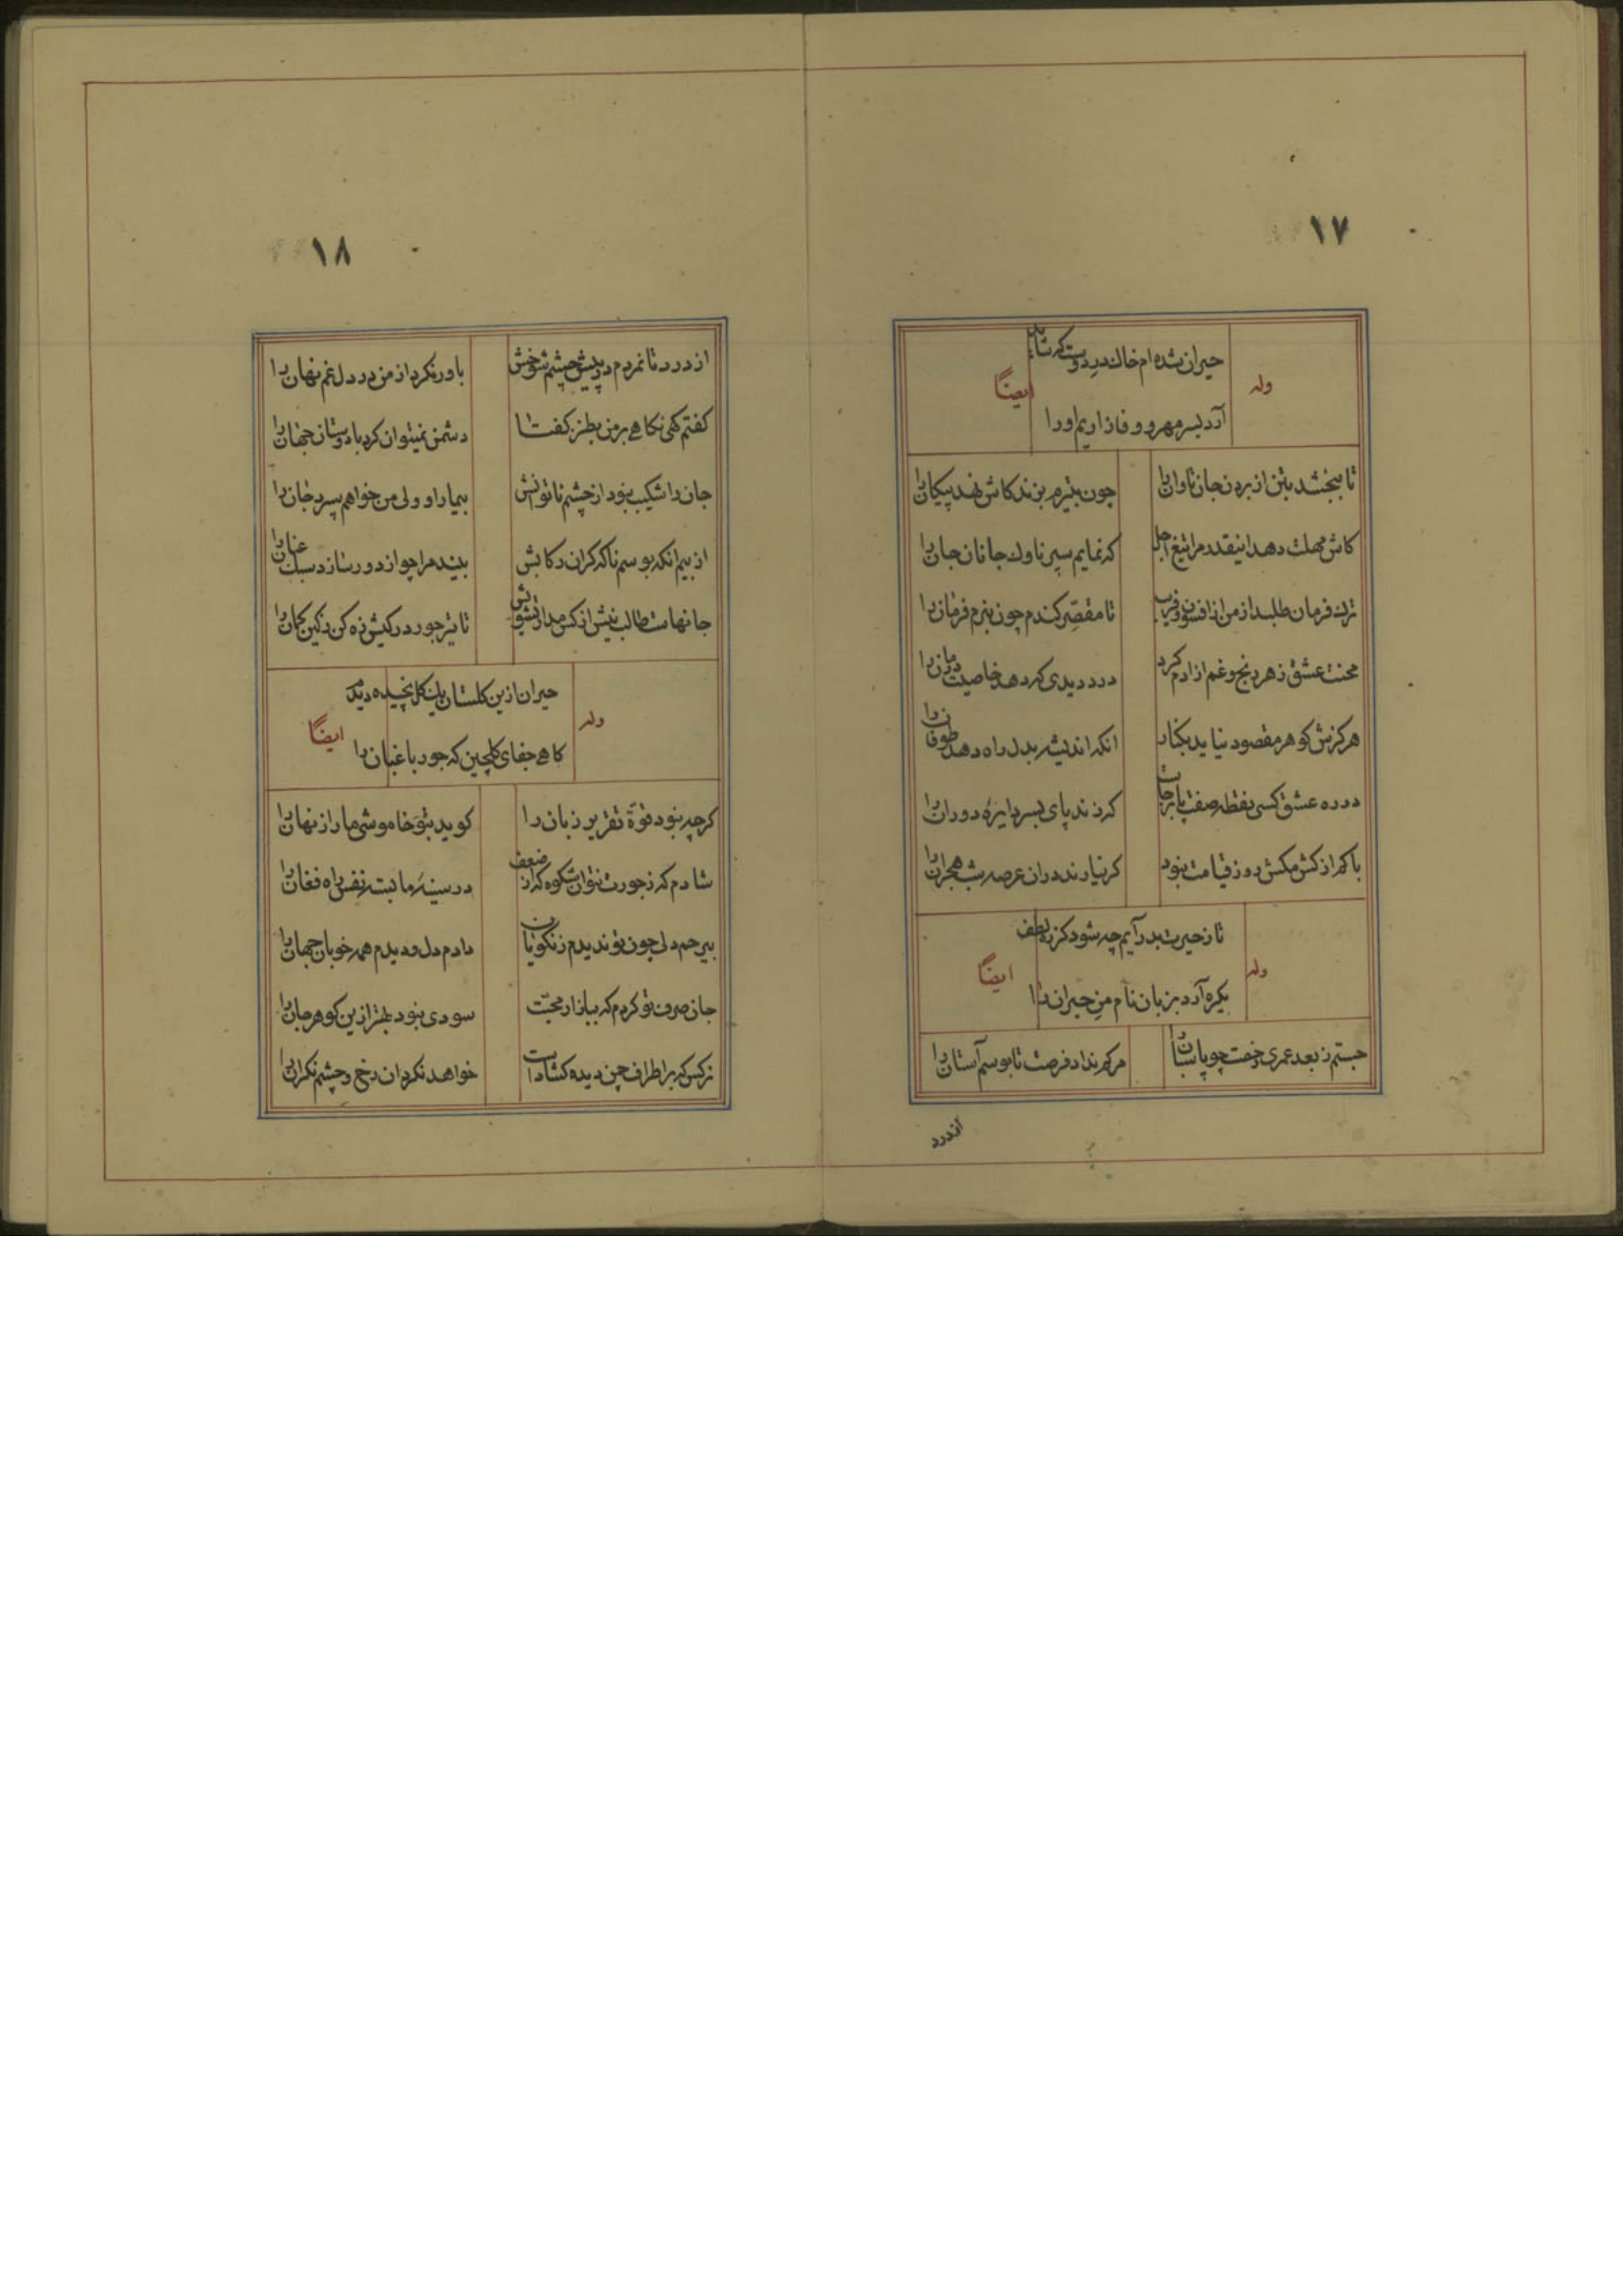 ۱۷
حیران شده‌ام خاک در دوست که شاید
وله
ایضاً
آرد بسر مهر و وفا زاریم او را
تا ببخشد بتن از بردن جان تاوان را
چون بتیرم بزند کاش نهد پیکان را
کاش مهلت دهد اینقدر مرا تیغ اجل
که نمایم سپر ناوک جانان جان را
ترک فرمان طلبد از من از افسون و فریب
تا مقصّر کندم چون نبرم فرمان را
محنت عشق ز هر رنج و غم ازادم کرد
درد دیدی که دهد خاصیت درمان را
هرگزش گوهر مقصود نیاید بکنار
انکه اندیشه بدل راه دهد طوفان را
در ره عشق کسی نقطه صفت پا برجاست
که زند پای بسر دایرهٔ دوران را
باکم از کش مکش روز قیامت نبود
گر نیارند دران عرصه شب هجران را
تا ز حیرت بدر آیم چه شود کز ره لطف
وله
ایضاً
یکره آرد بزبان نام من حیران را
جستم ز بعد عمری خفت چو پاسبان را
مرگم نداد فرصت تا بوسم آستان را
از درد
۱۸
از درد تا نمردم در پیش چشم شوخش
باور نکرد از من درد دل غم نهان را
گفتم گهی نگاهی بر من بطنز گفتا
دشمن نمیتوان کرد با دوستان جهان را
جان را شکیب نبود از چشم ناتوانش
بیمار او ولی من خواهم سپرد جان را
از بیم انکه بوسم ناگه گران رکابش
بیند مرا چو از دور سازد سبک عنان را
جانهاست طالب نیش از کس مدار تشویش
تا تیر جور در کیش زه کن ز کین کمان را
حیران ازین گلستان یک گل نچیده دیدم
وله
ایضاً
گاهی جفای گلچین گه جور باغبان را
گرچه نبود قوّة تقریر زبان را
گوید بتو خاموشی ما راز نهان را
شادم که ز جورت نتوان شکوه که از ضعف
در سینهٔ ما بسته نفس راه فغان را
بیرحم دلی چون تو ندیدم ز نکویان
دادم دل و دیدم همه خوبان جهان را
جان صرف تو کردم که ببازار محبّت
سودی نبود بهتر ازین گوهر جان را
نرگس که بر اطراف چمن دیده گشاداست
خواهد نگرد ان رخ و چشم نگران را